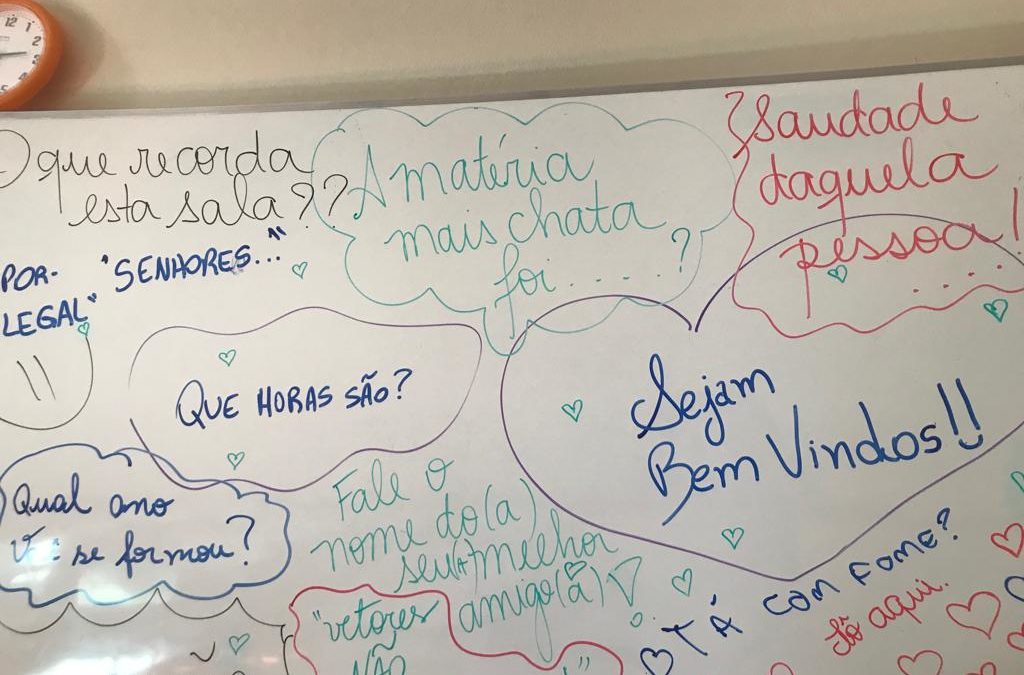 12
1
2
3
O que recorda
esta sala??
POR-
LEGAL"
"SENHORES..."
A matéria
mais chata
foi.....?
Saudade
daquela
pessoa!
...
QUE HORAS SÃO?
Sejam
Bem Vindos!!
Qual ano
se formou?
Fale o
nome do(a)
seu(A) melhor
amigo(a)
"vetores
NÃO
TÁ COM FOME?
aqui.